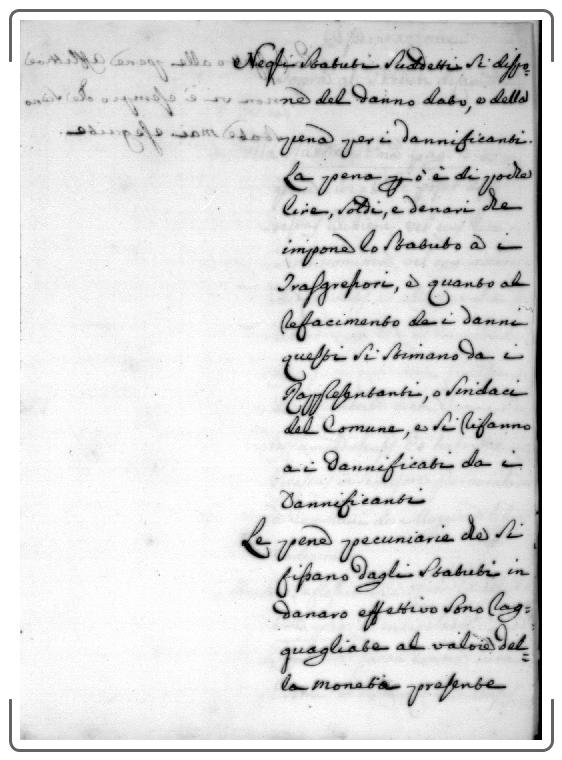 Negli Statuti Suddetti si dispo=
ne del danno dato, e della
pena per i dannificanti.
La pena però è di poche
lire, soldi, e denari che
impone lo Statuto à i
Trasgressori, e quanto al
refacimento de i danni
questi si stimano da i
Rappresentanti, o Sindaci
del Comune, e si rifanno
a i Dannificati da i
Dannificanti
Le pene pecuniarie che si
fissano dagli Statuti in
danaro effettivo sono rag=
quagliate al valore del=
la moneta presente